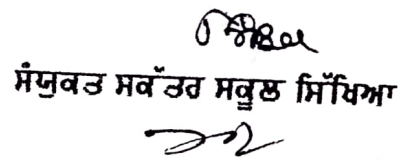 ਸੰਯੁਕਤ ਸਕੱਤਰ ਸਕੂਲ ਸਿੱਖਿਆ